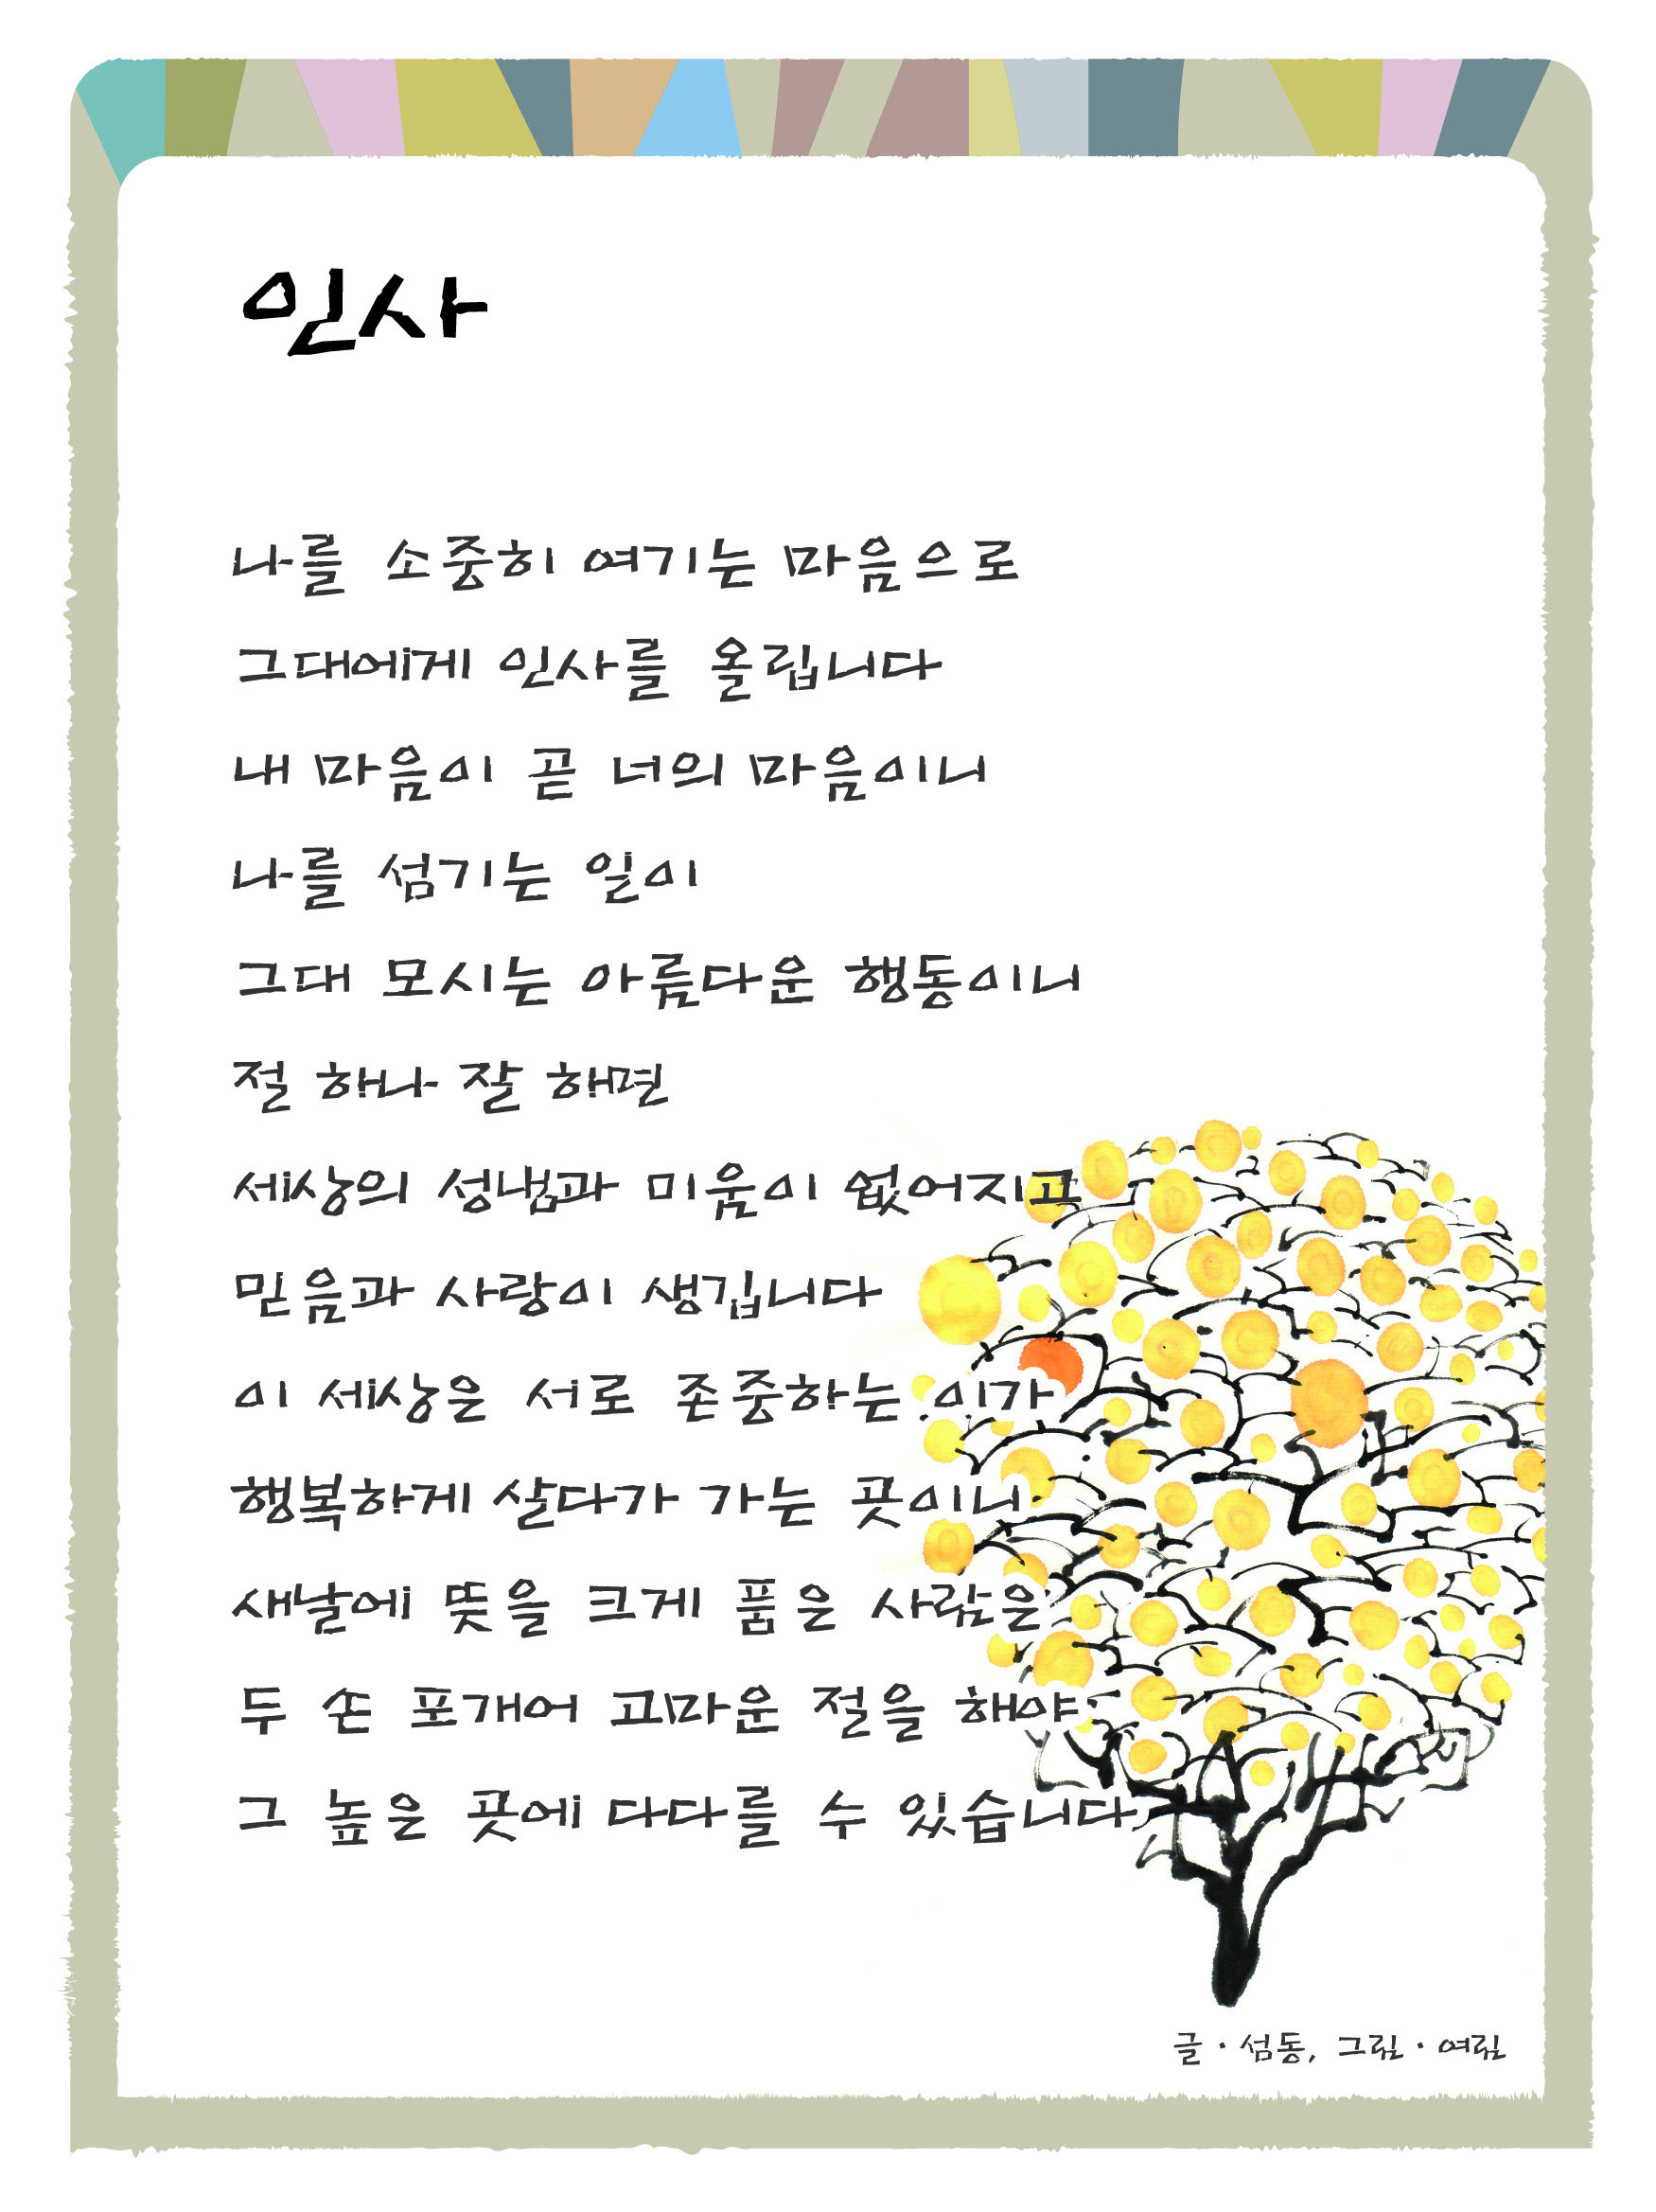 인사
나를 소중히 여기는 마음으로
그대에게 인사를 올립니다
내 마음이 곧 너의 마음이니
나를 섬기는 일이
그대 모시는 아름다운 행동이니
절 하나 잘 하면
세상의 성냄과 미움이 없어지고
믿음과 사랑이 생깁니다
이 세상은 서로 존중하는 이가
행복하게 살다가 가는 곳이니
새날에 뜻을 크게 품은 사람은
두 손 포개어 고마운 절을 해야
그 높은 곳에 다다를 수 있습니다
글·섬동, 그림·여림